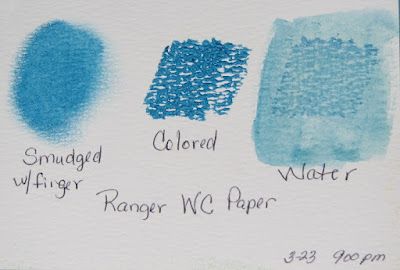 Smudged
w/finger
Colored
Water
Ranger WC Paper
3-23 900 pm